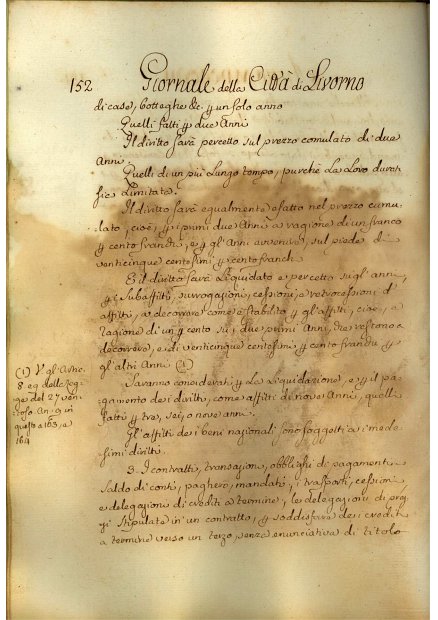 152 Giornale della Città di Livorno
di case, botteghe &c. p un solo anno
Quelli fatti p due Anni
Il diritto sarà percetto sul prezzo comulato di due
Anni.
Quelli di un più lungo tempo, purchè La Loro durata
sie Limitata.
Il diritto sarà egualmente esatto nel prezzo cumu
lato, cioè, p i primi due Anni a ragione di un franco
p cento franchi, e p gl' Anni avvenire, sul piede di
venticinque centesimi p cento franchi
E il diritto sarà Liquidato e percetto sugl' anni,
p i Subaffitti, surrogazioni, cessioni, e retrocessioni d'
affitti, a decorrere come è stabilito p gl' affitti, cioè, a
ragione di un p cento sui due primi Anni, che restono a
decorrere, e di venticinque centesimi p cento franchi p
gl' altri Anni (1)
(1) V. gl' Art.
8 e 9 della Leg
ge del 27 vent
oso. An. 9 in
questo a 163, e
164
Saranno considerati p La Liquidazione, e p il pa
gamento dei diritti, come affitti di nove Anni, quelli
fatti p tre, sei, o nove anni.
Gl' affitti dei beni nazionali sono soggetti ai mede
simi diritti.
3. I contratti, transazioni, obblighi di pagamenti
Saldo di conti, pagherò, mandati, i trasporti, cessioni
e delegazioni di crediti a termine, le delegazioni di prez
zi stipulate in un contratto, p soddisfare dei crediti
a termine verso un terzo, senza enunciativa di titolo